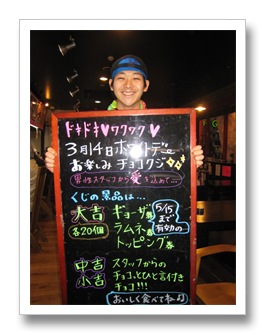 ドキドキ♥ワクワク♥
3月14日ホワイトデー
お楽しみ チョコクジ
男性スタッフから愛を込めて…
くじの景品は…
大吉 ギョーザ券
各20個 ラムネ券
トッピング券
5/15まで有効の
中吉 スタッフからの
小吉 チョコとひと言付き
チョコ!!!
おいしく食べてねッ